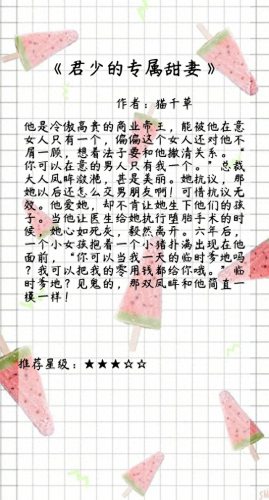 《君少的专属甜妻》
作者：猫千草
他是冷傲高贵的商业帝王，能被他在意
女人只有一个，偏偏这个女人还对他不
屑一顾，想着法子要和他撇清关系。“
你可以在意的男人只有我一个。”总裁
大人凤眸潋滟，甚是美丽。她抗议，那
她以后还怎么交男朋友啊！可惜抗议无
效。他爱她，却不肯让她生下他们的孩
子。当他让医生给她执行堕胎手术的时
候，她心如死灰，毅然离开。六年后，
一个小女孩抱着一个小猪扑满出现在他
面前，“你可以当我一天的临时爹地吗
？我可以把我的零用钱都给你哦。”临
时爹地？见鬼的，那双凤眸和他简直一
模一样！
推荐星级：★★★☆☆